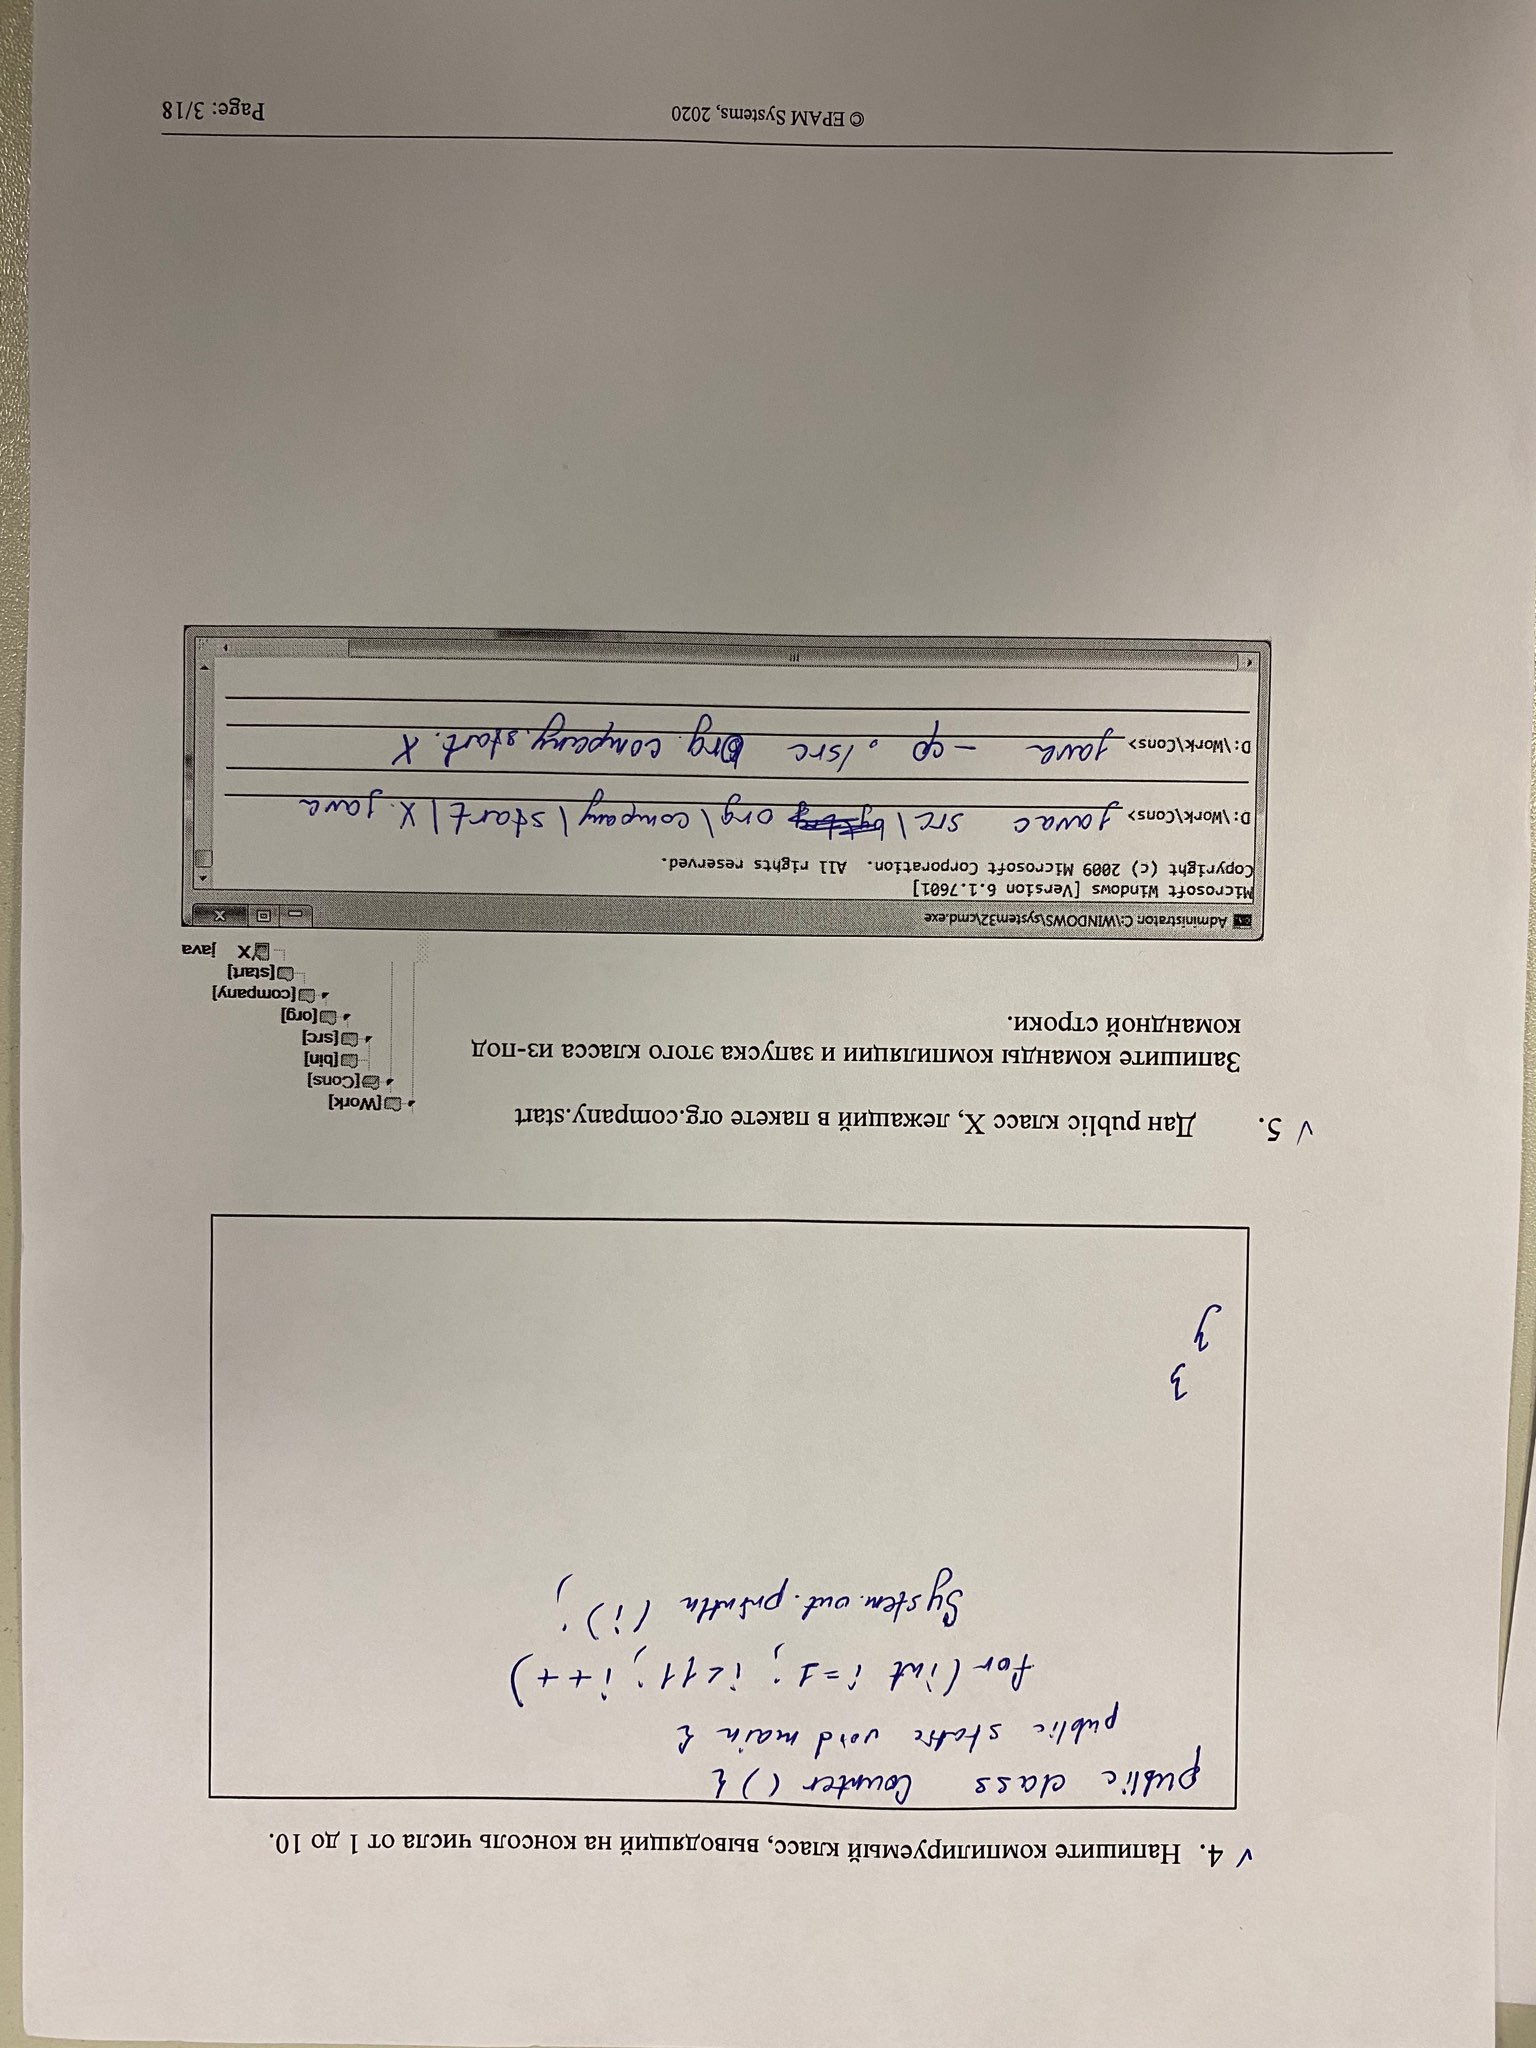 ✓ 4. Напишите компилируемый класс, выводящий на консоль числа от 1 до 10.
public class Counter () {
public static void main {
for (int i=1; i<11; i++)
System.out.println (i);
}
}
✓ 5. Дан public класс X, лежащий в пакете org.company.start
Запишите команды компиляции и запуска этого класса из-под
командной строки.
[Work]
[Cons]
[bin]
[src]
[org]
[company]
[start]
X java
Administrator: C:\WINDOWS\system32\cmd.exe
Microsoft Windows [Version 6.1.7601]
Copyright (c) 2009 Microsoft Corporation. All rights reserved.
D:\Work\Cons> javac src\ org\company\start\X.java
D:\Work\Cons> java -cp ./src org.company.start.X
© EPAM Systems, 2020
Page: 3/18